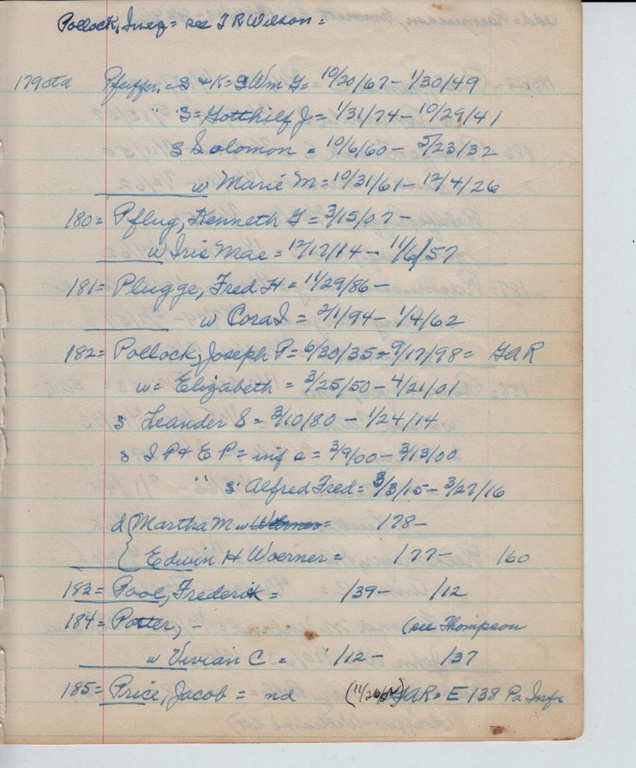 Pollock, Inez = see T R Wilson =
179 ctd Pfeiffer = S + K = S Wm G = 10/20/67 - 1/30/49
" S = Gotthilf J = 1/31/74 - 10/29/41
S Solomon = 10/6/60 - 5/23/32
w Marie M = 10/31/61 - 12/4/26
180 = Pflug, Kenneth G = 3/15/07 -
w Iris Mae = 12/17/14 - 11/6/57
181 = Plugge, Fred H = 11/29/86 -
w Cora I = 2/1/94 - 1/4/62
182 = Pollock, Joseph P = 6/30/35 = 9/17/98 = GAR
w = Elizabeth = 3/25/50 - 4/21/01
s Leander S = 3/10/80 - 1/24/14
s S P + E P = inf c = 3/9/00 - 3/13/00
" s Alfred Fred = 3/3/15 - 3/27/16
d { Martha M w Woerner = 178 -
Edwin H Woerner = 177 - 160
183 = Pool, Frederik = /39 - /12
184 = Potter, - (see Thompson
w Vivian C = /12 - /37
185 = Price, Jacob = nd GAR = E 138 Pa Inf